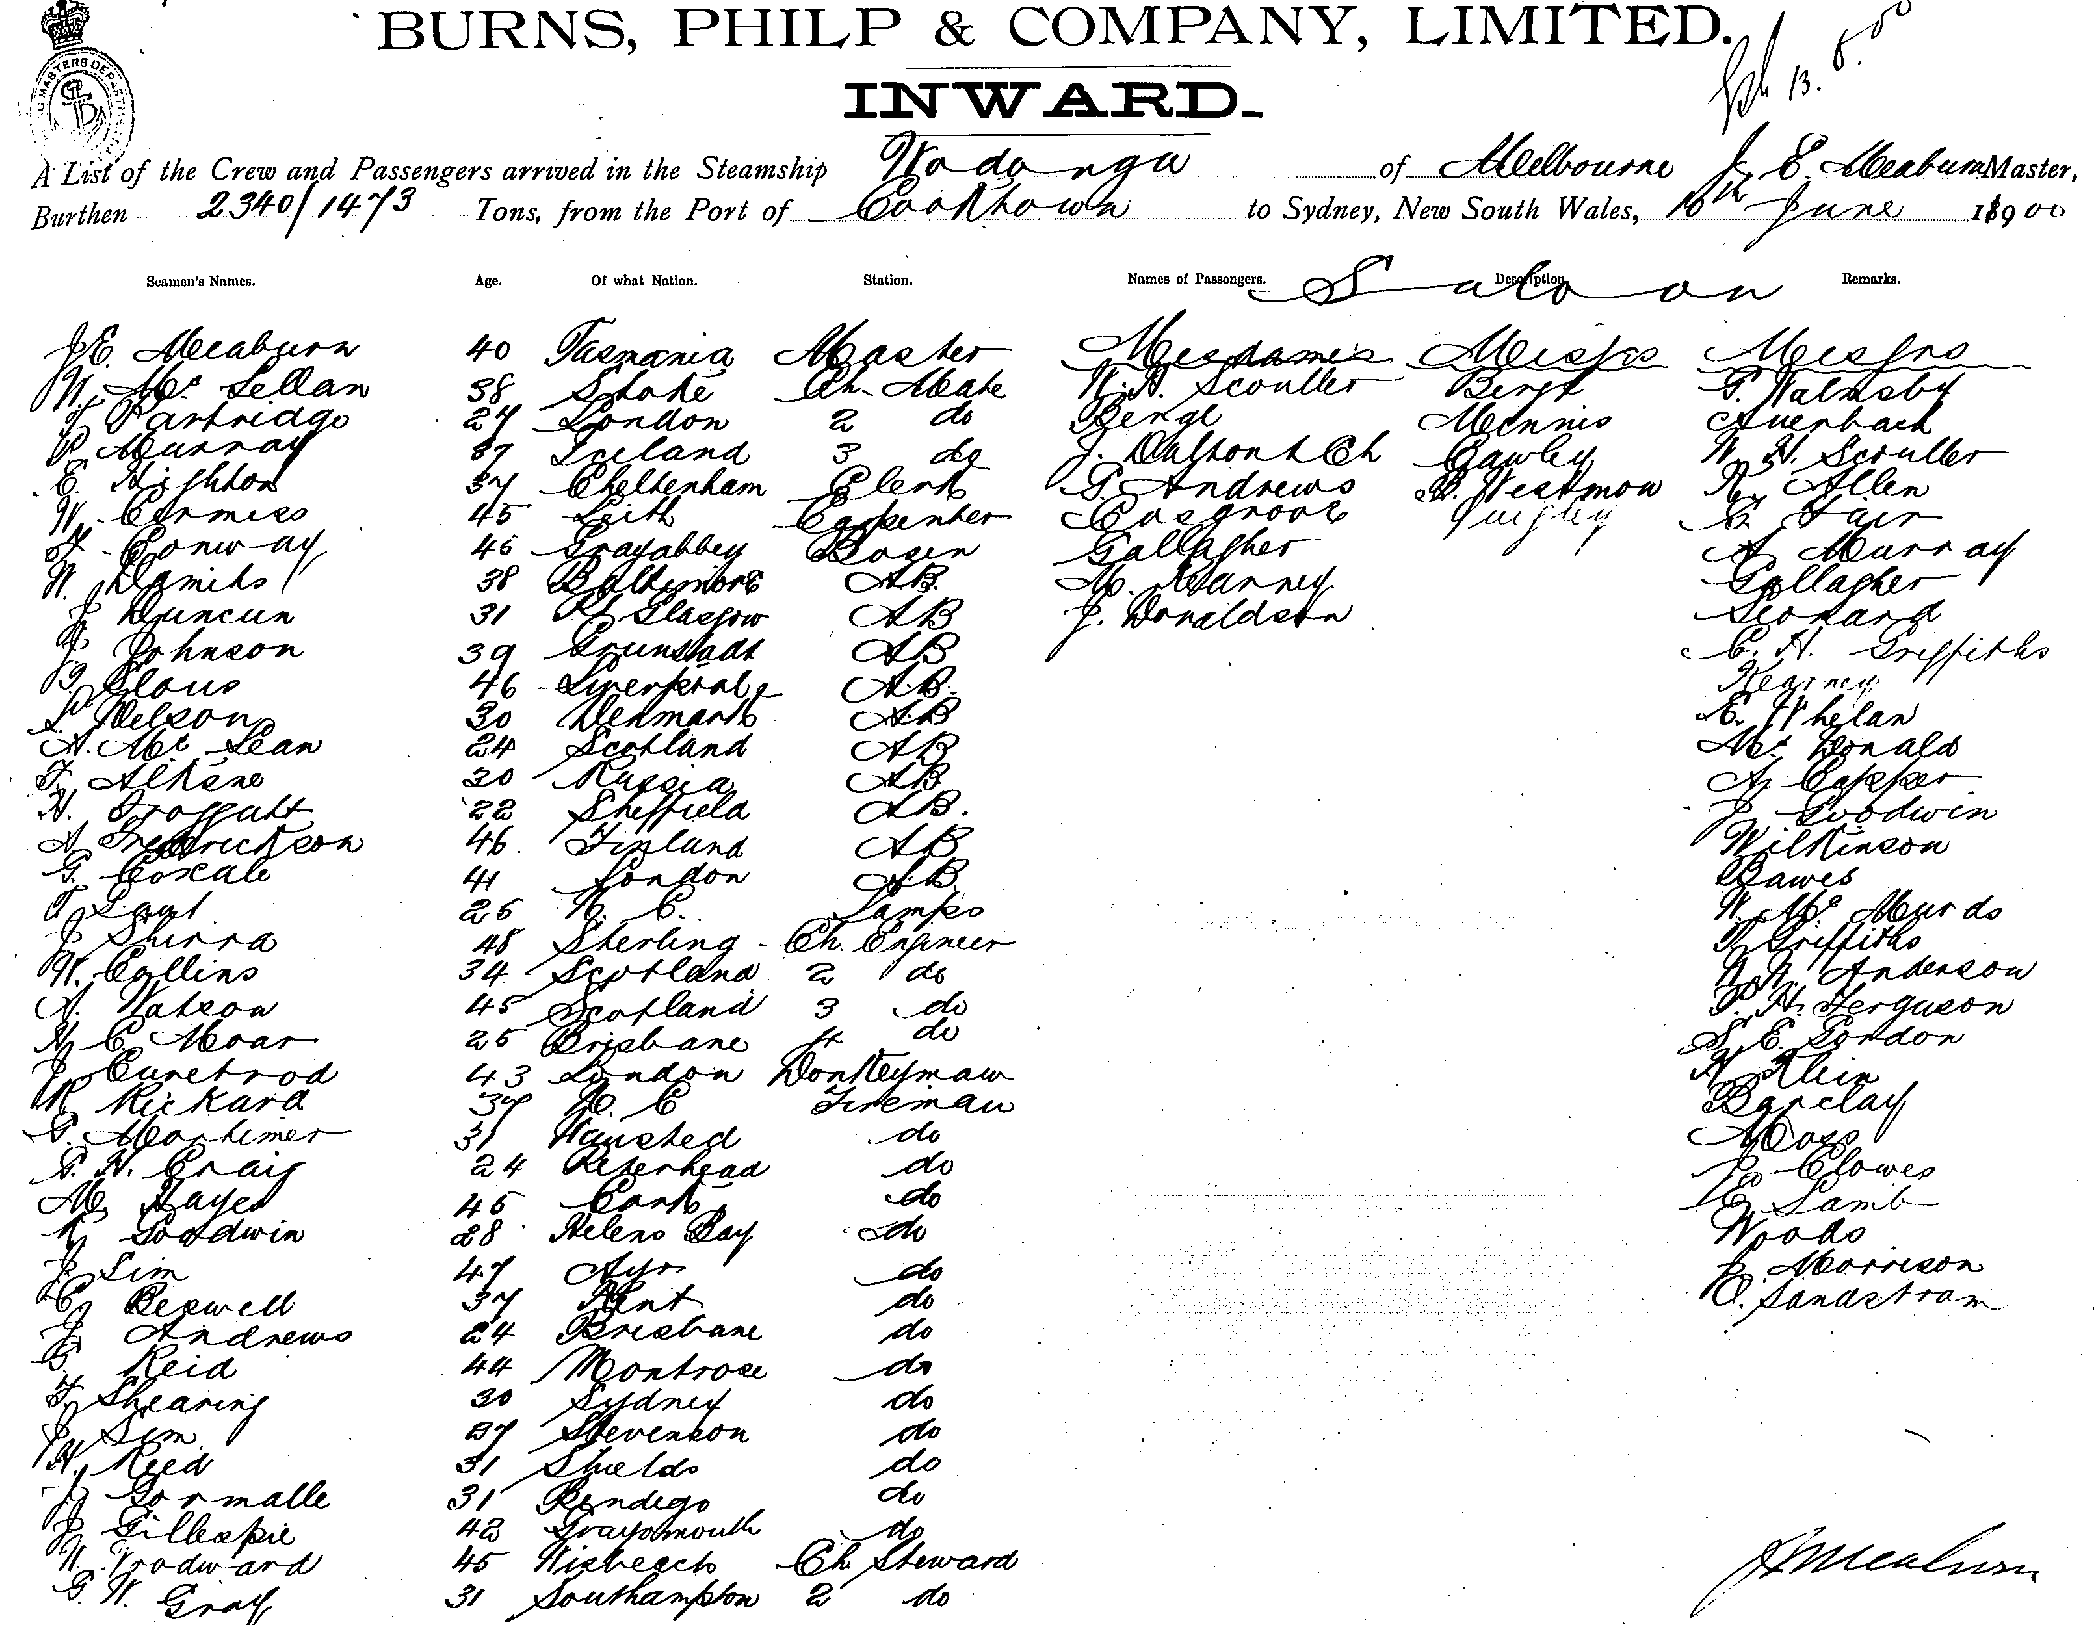 BURNS, PHILP & COMPANY, LIMITED.
INWARD.
A List of the Crew and Passengers arrived in the Steamship Wodonga of Melbourne J. E. Meaburn Master,
Burthen 2340/1473 Tons, from the Port of Cooktown to Sydney, New South Wales, 16th June 1900
Seamen's Names. Age. Of what Nation. Station. Names of Passengers. Description. Remarks.
Saloon
J.E. Meaburn 40 Tasmania Master Mesdames Misses Messrs
W. Mc Lellan 38 Stoke Ch. Mate W.H. Scouller Berge P. Walmsby
Partridge 27 London 2 do Berge Mennis Auerbach
P. Murray Iceland 3 do J. Dalton & Ch Cawley W. H. Scouller
E. Highton 37 Cheltenham Clerk G. Andrews Westmow R. Allen
W. Cormiss 45 Leith Carpenter Cosgrove Quigley C. Fair
Conway 46 Grayabbey Bosen Gallagher A. Murray
W. Daniels 38 Baltimore AB. M. Kearney Gallagher
J. Duncun 31 Pt Glasgow AB J. Donaldson Leonard
J. Johnson 39 Grunstadt AB C. H. Griffiths
Clous 46 Liverpool AB. Kearney
Nelson 30 Denmark AB E. Whelan
A. Mc Lean 24 Scotland AB Mc Donald
F. Alkene 30 Russia AB A. Capper
H. Froggatt 22 Sheffield AB. J. Goodwin
A. Frederickson 46 Finland AB Wilkinson
G. Coxcale 41 London AB Bawes
T. Laut 25 N. C. Lamps W. Mc Murdo
J. Shirra 48 Sterling Ch. Engineer Griffiths
W. Collins 34 Scotland 2 do Anderson
A. Watson 45 Scotland 3 do P. H. Ferguson
H. C. Moar 25 Brisbane 4 do S. E. Gordon
J. Curetrod 43 London Donkeyman H. Klein
R. Rickard 37 N. C Fireman Barclay
G. Mortimer 31 Wansted do Moss
G. H. Craig 24 Peterhead do J. Clowes
M. Hayes 45 Cork do E. Lamb
R. Goodwin 28 Helens Bay do Woods
J. Sim 47 Ayr do J. Morrison
C. Bexwell 37 Kent do C. Sandstrom
J. Andrews 24 Brisbane do
G. Reid 44 Montrose do
F. Shearing 30 Sydney do
J. Sim Stevenson do
H. Reed 31 Shields do
J. Gormalle 31 Bendigo do
J. Gillespie 42 Graysmouth do
W. Woodward 45 Wisbeach Ch Steward
G. W. Gray 31 Southampton 2 do
J E Meaburn